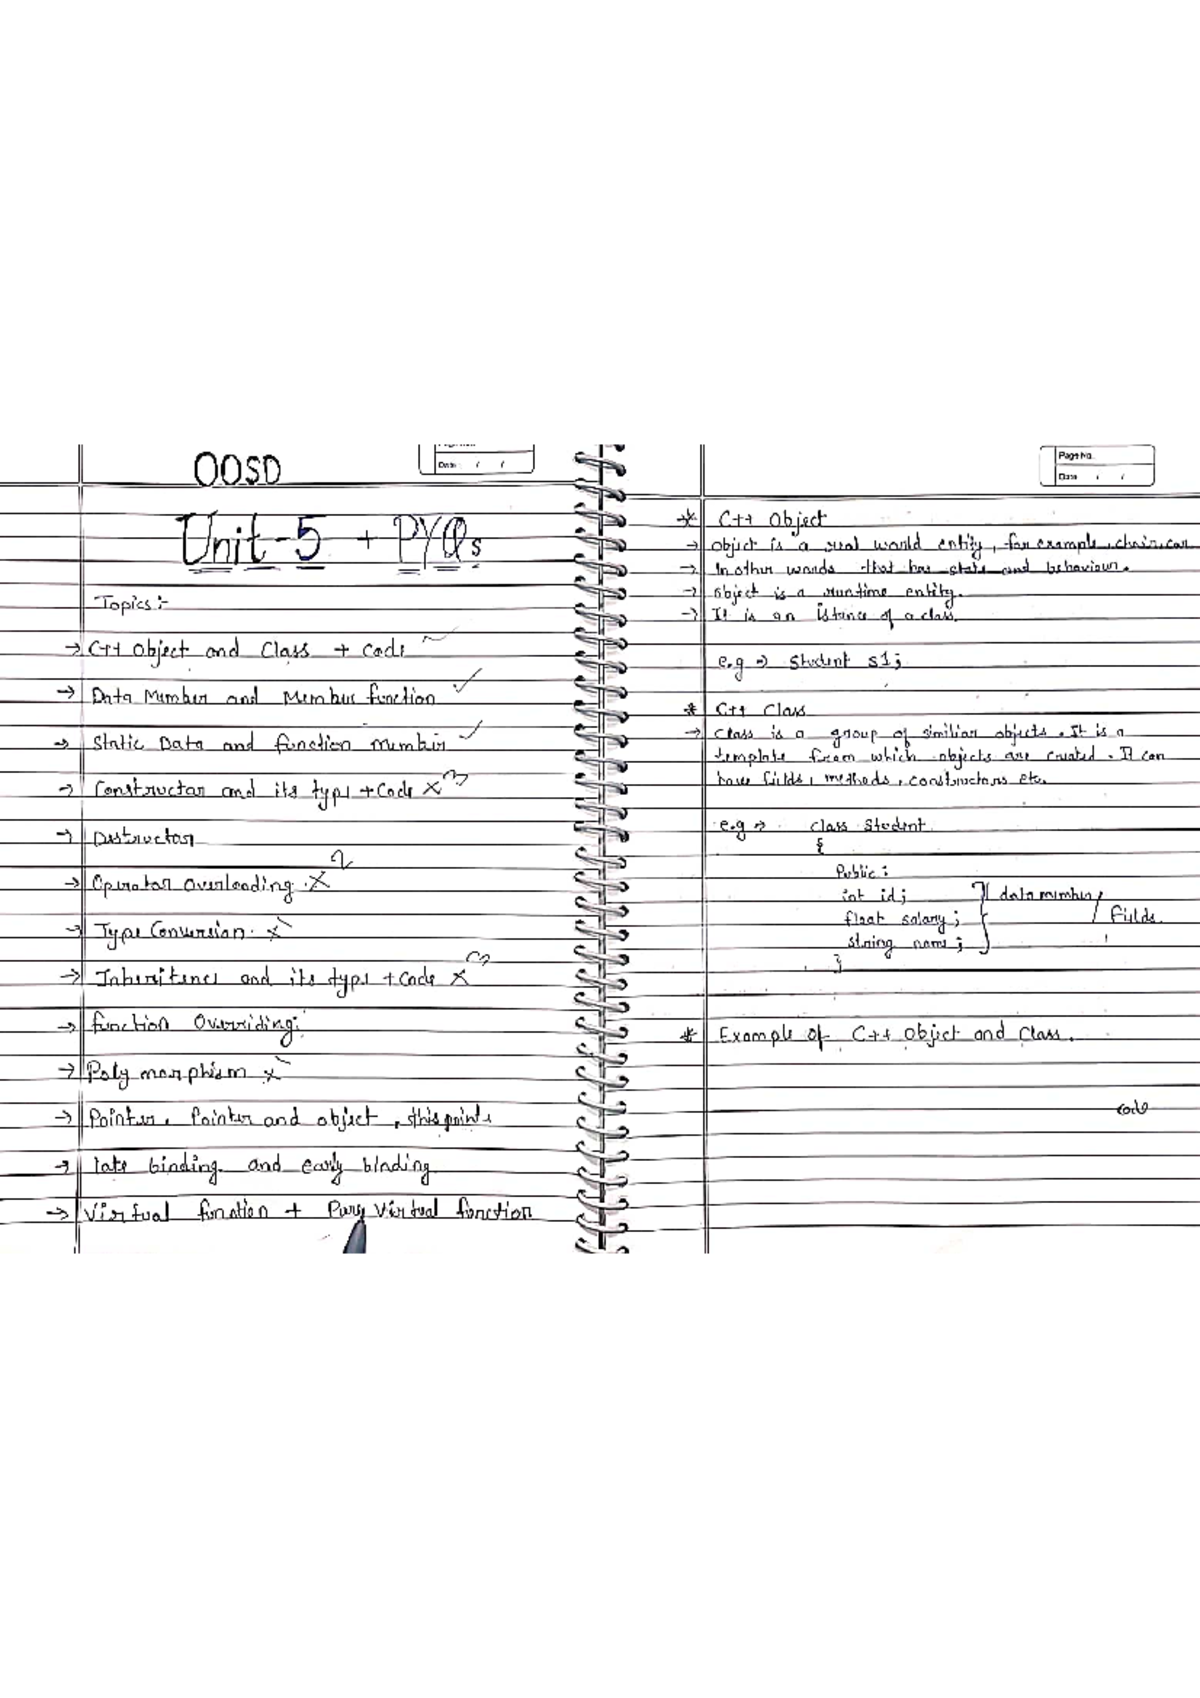 OOSD
Date / /
Unit-5 + PYQs
Topics :-
→ C++ Object and Class + Code
→ Data Member and Member function ✓
→ Static Data and function member ✓
→ Constructor and its type + Code × 3
→ Destructor
→ Operator Overloading × 2
→ Type Conversion ×
→ Inheritence and its type + Code × 3
→ function Overriding:
→ Polymorphism ×
→ Pointer, Pointer and object, this pointe
→ late binding and early binding
→ Virtual function + Pure Virtual function
Page No.
Date / /
* C++ Object
→ Object is a real world entity, for example, chair, car
→ In other words that has state and behaviour.
→ Object is a runtime entity.
→ It is an istance of a class.
e.g ⇒ Student s1;
* C++ Class
→ Class is a group of similiar objects. It is a
template from which objects are created. It can
have fields, methods, constructors etc.
e.g ⇒ class Student
{
Public :
int id; } data member/
float salary; fields.
string name;
}
* Example of C++ Object and Class.
code